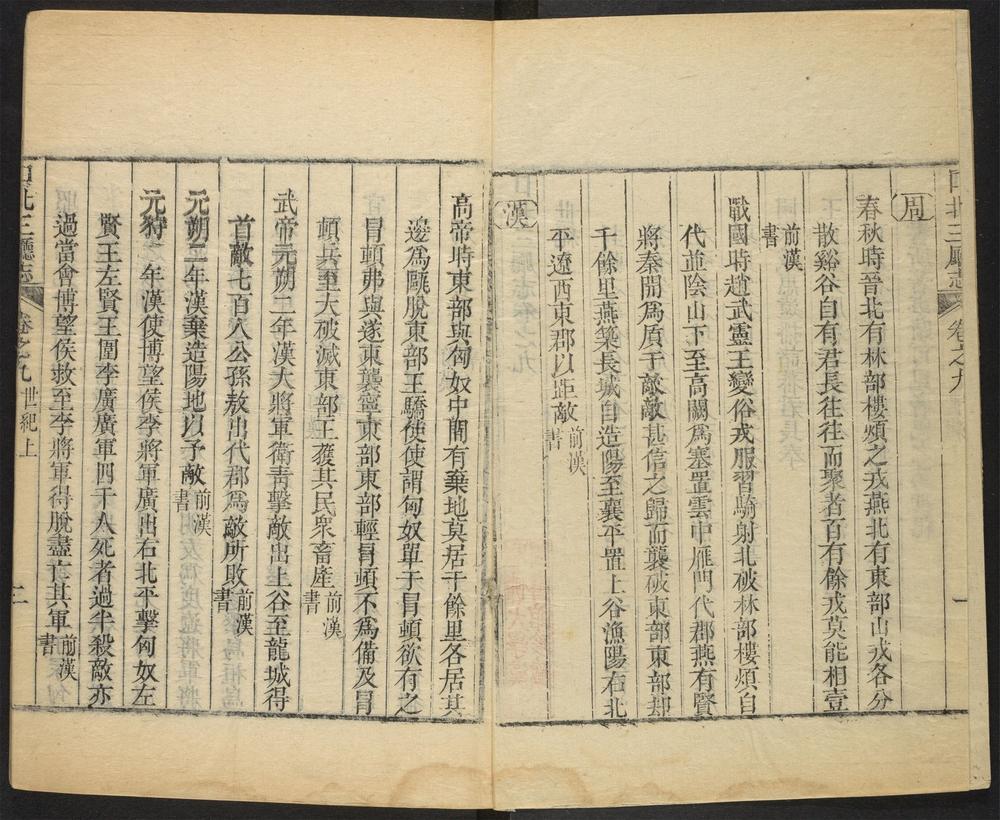 口北三廳志 卷之九 一
周
春秋時晉北有林部樓煩之戎燕北有東部山戎各分
散谿谷自有君長往往而聚者百有餘戎莫能相壹
前漢書
戰國時趙武靈王變俗戎服習騎射北破林部樓煩自
代並陰山下至高闕爲塞置雲中雁門代郡燕有賢
將秦開爲質于敵敵甚信之歸而襲破東部東部却
千餘里燕築長城自造陽至襄平置上谷漁陽右北
平遼西東郡以距敵前漢書
漢
高帝時東部與匈奴中閒有棄地莫居千餘里各居其
邊爲甌脫東部王驕使使謂匈奴單于冒頓欲有之
冒頓弗與遂東襲擊東部東部輕冒頓不爲備及冒
頓兵至大破滅東部王獲其民衆畜產前漢書
武帝元朔二年漢大將軍衛靑擊敵出上谷至龍城得
首敵七百人公孫敖出代郡爲敵所敗前漢書
元朔二年漢棄造陽地以予敵前漢書
元狩 年漢使博望侯李將軍廣出右北平擊匈奴左
賢王左賢王圍李廣廣軍四千人死者過半殺敵亦
過當會博望侯救至李將軍得脫盡亡其軍前漢書
口北三廳志 卷之九 世紀上 二